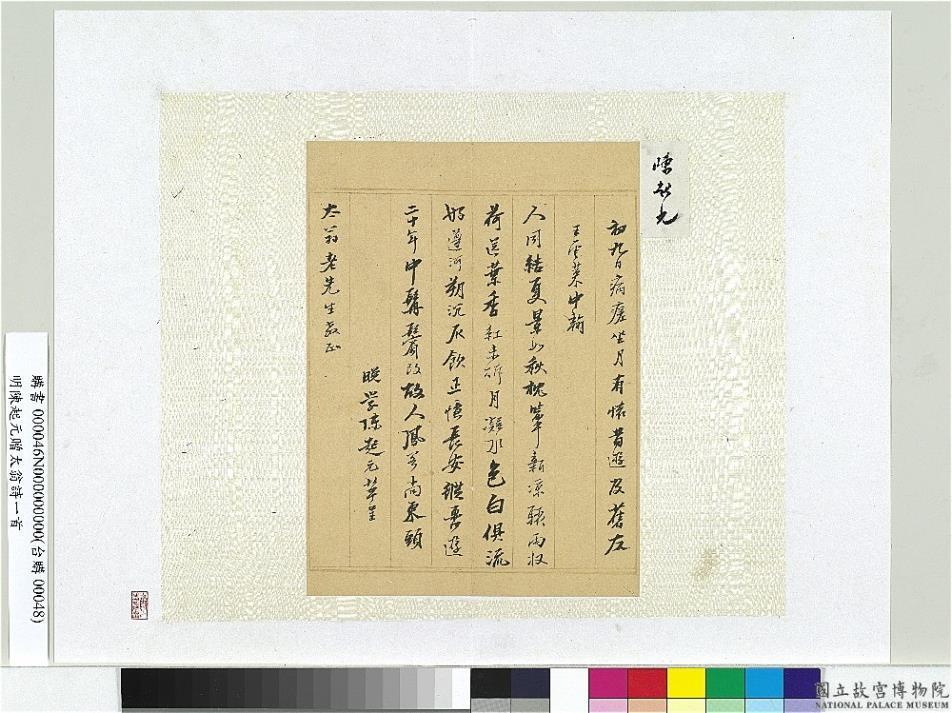 陳起元
初九日病瘧坐月有懷昔遊及舊友
王雲萊中翰
人間結夏景如秋枕簟新涼驟雨收
荷送葉香紅未斷月凝水色白俱流
好邀河朔沉灰飲正憶長安縱轡遊
二十年中鬍鬢改故人鳳閣尚東頭
晚学陳起元草呈
太翁老先生教正
購書 000046N000000000(台購 00048)
明陳起元贈太翁詩一首
國立故宮博物院
NATIONAL PALACE MUSEUM